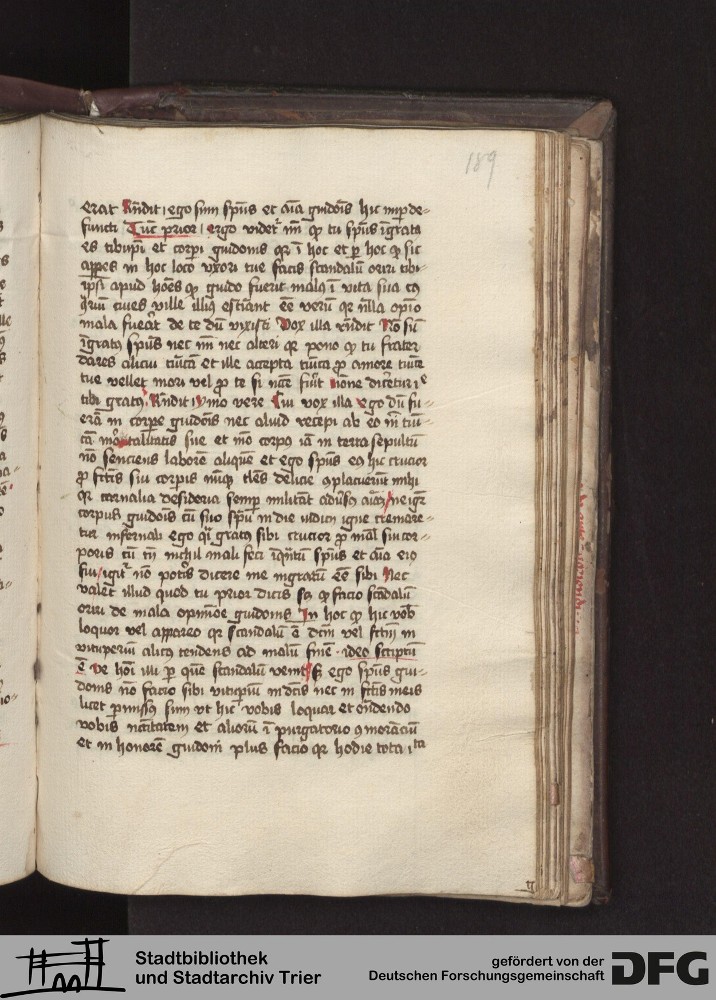 189
erat Rn̄dit ego sum sp̄us et aīa guidōis hic nup de=
functi Tūc prior ergo videt᷑ m̄ ꝙ tu sp̄us īgrata
es et corpi guidonis qꝛ ī hoc et ꝑ hoc ꝙ sic
appes in hoc loco vxori tue facis scandalū oriri tibi
ip̄i apud hōes ꝙ guido fuerit malꝰ ī vita sua
cives ville illiꝰ estīant eē verū qꝛ nlla opīo
mala fuerat de te dū vixisti Vox illa rn̄dit Nō sū
īgratꝰ sp̄us nec m̄ nec alteri qꝛ pono ꝙ tu frater
dares alicui tūcā et ille accepta tūca ꝓ amore tūice
tue vellet mori vel ꝓ te si ncē fūit
tibi gratꝰ Rn̄dit ymo vere Cui vox illa Ego dū fu=
erā in corpe guidōis nec aliud recepi ab eo m̄ tūi=
cā mortalitatis sue et mō corpꝰ iā in terra sepultū
nō senciens laborē aliquē et ego sp̄us eꝰ hic crucior
ꝓ fctis sui corpis tles delicie ꝯplacuerūt mihi
qꝛ carnalia desideria semp militāt adūsꝰ aīaꝫ ne igr̄
corpus guidōis cū suo sp̄u in die iudicii igne cremare=
tur infernali ego gratꝰ sibi crucior ꝓ mal sui cor=
poris cū tn̄ nichil mali feci sp̄us et aīa eiꝰ
fui igit᷑ nō potis dicere me ingratū eē sibi Nec
valet illud quod tu prior dicis ꝙ facio scādalū
oriri de mala opinōe guidonis In hoc ꝙ hic vob̄
loquor vel appareo qꝛ scandalū ē dcm̄ vel fctū in
vitupeiū alicꝰ tendens ad malū finē ideo scriptū
ē Ve hōi illi ꝑ quē scandalū venit Sꝫ ego sp̄us gui=
donis nō facio sibi vitupiū in dctis nec in fctis meis
licet pmissꝰ sum vt hic vobis loquar et on̄dendo
vobis nccitatem et alioꝝ ī purgatorio ꝯmorāciū
et in honorē guidonis plus facio qꝛ hodie tota
Stadtbibliothek
und Stadtarchiv Trier
gefördert von der
Deutschen Forschungsgemeinschaft
DFG